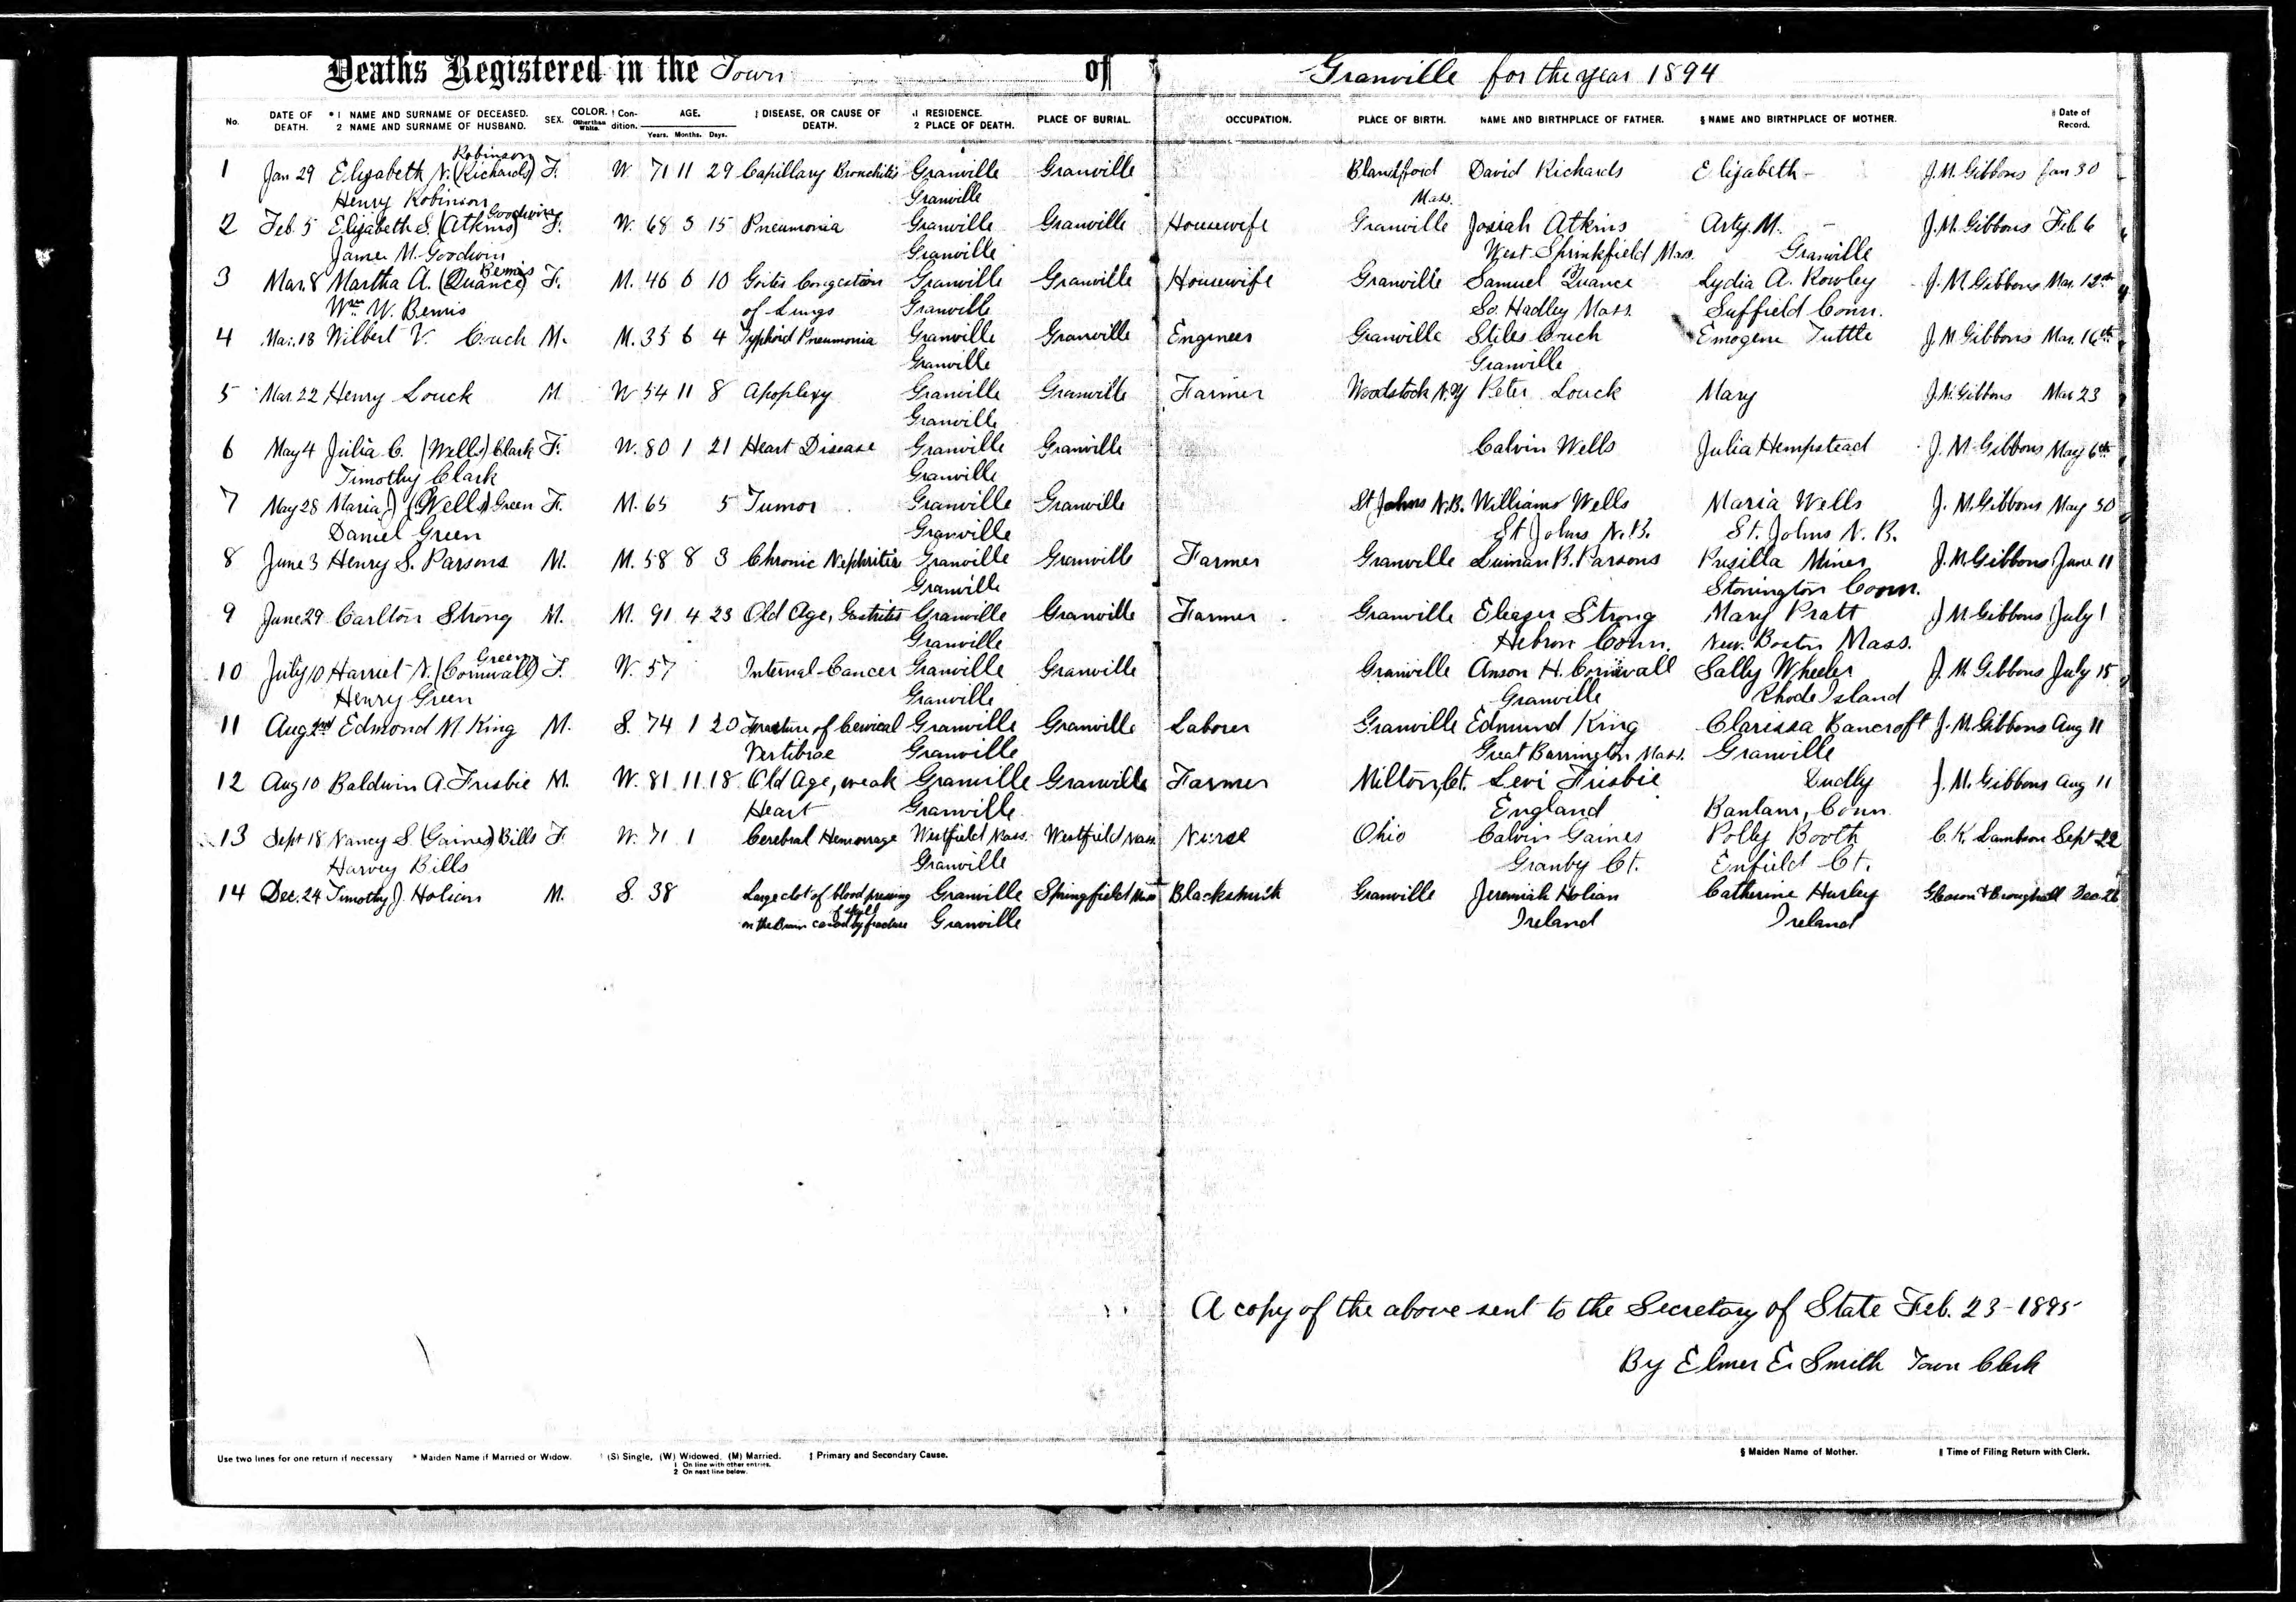 Deaths Registered in the Town of Granville for the year 1894
No. DATE OF DEATH. * 1 NAME AND SURNAME OF DECEASED. 2 NAME AND SURNAME OF HUSBAND. SEX. COLOR. Other than White. † Condition. AGE. Years. Months. Days. ‡ DISEASE, OR CAUSE OF DEATH. 1 RESIDENCE. 2 PLACE OF DEATH. PLACE OF BURIAL. OCCUPATION. PLACE OF BIRTH. NAME AND BIRTHPLACE OF FATHER. § NAME AND BIRTHPLACE OF MOTHER. ‖ Date of Record.
Robinson
1 Jan 29 Elizabeth N. (Richards) F. W 71 11 29 Capillary Bronchitis Granville Granville Blandford David Richards Elizabeth - J. M. Gibbons Jan 30
Henry Robinson Granville Mass.
Goodwin
2 Feb. 5 Elizabeth S. (Atkins) F. W. 68 3 15 Pneumonia Granville Granville Housewife Granville Josiah Atkins M. - J. M. Gibbons Feb. 6
James M. Goodwin Granville West Sprinkfield Mass. Granville
Bemis
3 Mar. 8 Martha A. (Quance) F. M. 46 6 10 Goiter Congestion Granville Granville Housewife Granville Samuel Quance Lydia A. Rowley J. M. Gibbons Mar. 12th
Wm W. Bemis of Lungs Granville So. Hadley Mass. Suffield Conn.
4 Mar. 13 Wilbert V. Couch M. M. 35 6 4 Typhoid Pneumonia Granville Granville Engineer Granville Stiles Couch Emogene Tuttle J. M. Gibbons Mar. 16th
Granville Granville
5 Mar 22 Henry Louck M W 54 11 8 Apoplexy Granville Granville Farmer Woodstock N.Y Peter Louck Mary J. M. Gibbons Mar 23
Granville
6 May 4 Julia C. (Wells) Clark F. W. 80 1 21 Heart Disease Granville Granville Calvin Wells Julia Hempstead J. M. Gibbons May 6th
Timothy Clark Granville
7 May 28 Maria (Wells) Green F. M. 65 5 Tumor Granville Granville St Johns N.B. William Wells Maria Wells J. M. Gibbons May 30
Daniel Green Granville St Johns N. B. St. Johns N. B.
8 June 3 Henry S. Parsons M. M. 58 8 3 Chronic Nephritis Granville Granville Farmer Granville Luman B. Parsons Prisilla Miner J. M. Gibbons June 11
Granville Stonington Conn.
9 June 29 Carlton Strong M. M. 91 4 23 Old Age, Gastritis Granville Granville Farmer Granville Eleazer Strong Mary Pratt J M Gibbons July 1
Granville Hebron Conn. New Boston Mass.
Green
10 July 10 Harriet N. (Cornwall) F. W. 57 Internal Cancer Granville Granville Granville Anson H. Cornwall Sally Wheeler J. M. Gibbons July 15
Henry Green Granville Granville Rhode Island
11 Aug 2nd Edmond M. King M. S. 74 1 20 Fracture of Cervical Granville Granville Laborer Granville Edmund King Clarissa Bancroft J. M. Gibbons Aug 11
Vertibrae Granville Great Barrington Mass. Granville
12 Aug 10 Baldwin A. Frisbie M. W. 81 11 18 Old Age, weak Granville Granville Farmer Milton, Ct. Levi Frisbie Dudly J. M. Gibbons Aug 11
Heart Granville England Bantam, Conn
13 Sept 18 Nancy S. (Gaines) Bills F. W. 71 1 Cerebral Hemorrage Westfield Mass. Westfield Mass. Nurse Ohio Calvin Gaines Polly Booth C. K. Lambson Sept 22
Harvey Bills Granville Granby Ct. Enfield Ct.
14 Dec. 24 Timothy J. Holian M. S. 38 Large clot of blood pressing Granville Springfield Mass Blacksmith Granville Jeremiah Holian Catherine Hurley Gleason & Broughall Dec 26
of skull
on the Brain caused by fracture Granville Ireland Ireland
A copy of the above sent to the Secretary of State Feb. 23 - 1895
By Elmer E. Smith Town Clerk
Use two lines for one return if necessary * Maiden Name if Married or Widow. † (S) Single, (W) Widowed, (M) Married. ‡ Primary and Secondary Cause. § Maiden Name of Mother. ‖ Time of Filing Return with Clerk.
1 On line with other entries.
2 On next line below.